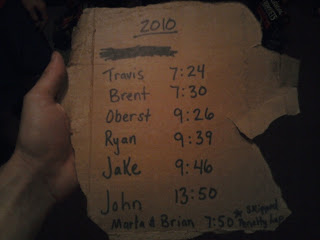 2010
Travis 7:24
Brent 7:30
Oberst 9:26
Ryan 9:39
Jake 9:46
John 13:50
Marta & Brian 7:50 * Skipped Penalty Lap